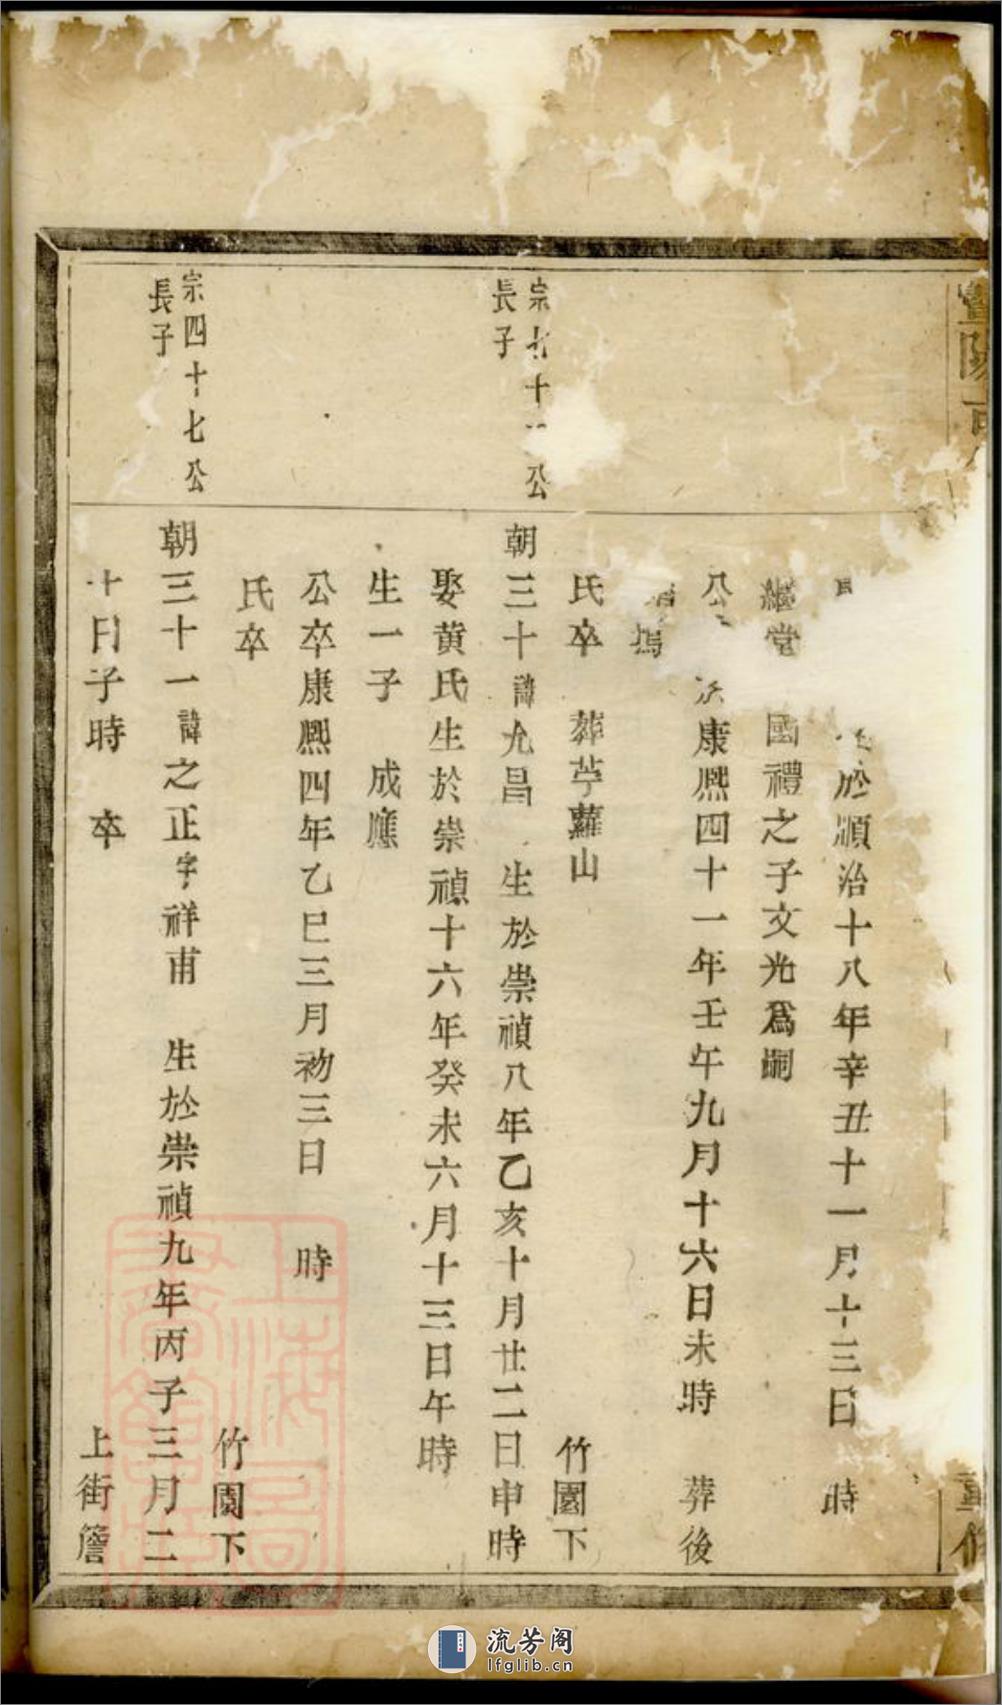 暨陽
重修
於順治十八年辛丑十一月十三日 時
繼堂 國禮之子文光爲嗣
公 康熙四十一年壬午九月十六日未時 葬後
塢
氏卒 葬苧蘿山 竹園下
宗七十 公
長子
朝三十諱允昌 生於崇禎八年乙亥十月廿二日申時
娶黄氏生於崇禎十六年癸未六月十三日午時
生一子 成應
公卒康熙四年乙巳三月初三日 時
氏卒 竹園下
宗四十七公
長子
朝三十一諱之正字祥甫 生於崇禎九年丙子三月二
十日子時 卒 上街簷
上海圖書館藏
流芳阁
lfglib.cn